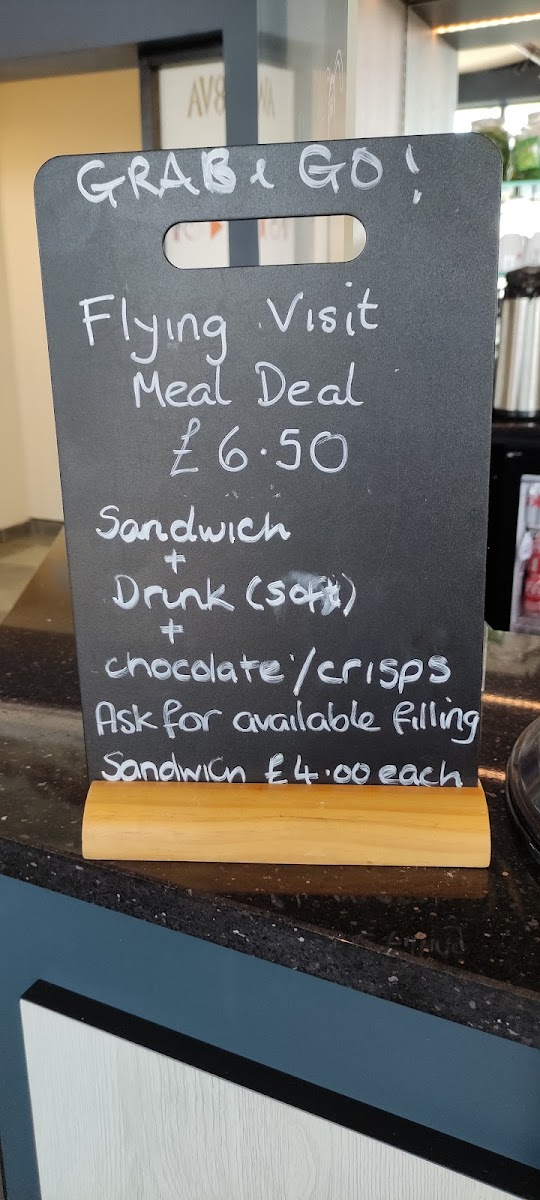 GRAB & GO!
Flying Visit
Meal Deal
£6.50
Sandwich
+
Drink (soft)
+
chocolate/crisps
Ask for available filling
Sandwich £4.00 each